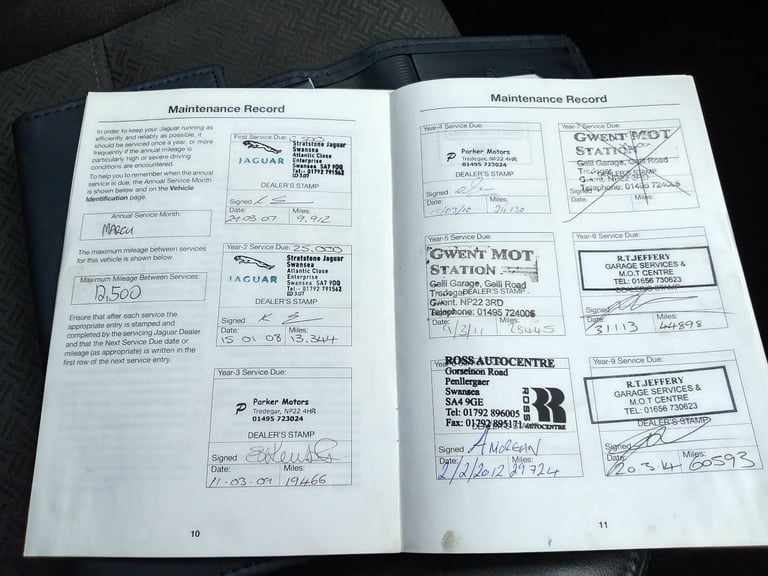 Maintenance Record
In order to keep your Jaguar running as
efficiently and reliably as possible, it
should be serviced once a year, or more
frequently if the annual mileage is
particularly high or severe driving
conditions are encountered.
To help you to remember when the annual
service is due, the Annual Service Month
is shown below and on the Vehicle
Identification page.
Annual Service Month:
MARCH
The maximum mileage between services
for this vehicle is shown below.
Maximum Mileage Between Services:
12,500
Ensure that after each service the
appropriate entry is stamped and
completed by the servicing Jaguar Dealer
and that the Next Service Due date or
mileage (as appropriate) is written in the
first row of the next service entry.
First Service Due:
JAGUAR
Stratstone Jaguar
Swansea
Atlantic Close
Enterprise
Swansea SA7 9DQ
Tel:- 01792 791562
DEALER'S STAMP
Signed
Date: Miles:
24 03 07 9,912
Year-2 Service Due: 25,000
JAGUAR
Stratstone Jaguar
Swansea
Atlantic Close
Enterprise
Swansea SA7 9DQ
DEALER'S STAMP
Signed
Date: Miles:
15 01 08 13,344
Year-3 Service Due:
Parker Motors
Tredegar, NP22 4HR
01495 723024
DEALER'S STAMP
Signed
Date: Miles:
11-03-09 19466
10
Maintenance Record
Year-4 Service Due:
Parker Motors
Tredegar, NP22 4HR
01495 723024
DEALER'S STAMP
Signed
Date: Miles:
Year-5 Service Due:
GWENT MOT
STATION
Gelli Garage, Gelli Road
Tredegar
DEALER'S STAMP
Gwent. NP22 3RD
Telephone: 01495 724006
Date: Miles:
ROSS AUTOCENTRE
Gorseinon Road
Penllergaer
Swansea
SA4 9GE
Tel: 01792 896005
Fax: 01792 895171
ROSS
AUTOCENTRE
Signed A MORGAN
Date: Miles:
2/2/2012 29724
Year-7 Service Due:
GWENT MOT
STATION
Gelli Garage, Gelli Road
DEALER'S STAMP
Signed
Telephone: 01495
Date: Miles:
Year-8 Service Due:
R.T.JEFFERY
GARAGE SERVICES &
M.O.T CENTRE
TEL: 01656 730623
DEALER'S STAMP
Signed
Date: Miles:
31.1.13 44898
Year-9 Service Due:
R.T.JEFFERY
GARAGE SERVICES &
M.O.T CENTRE
TEL: 01656 730623
DEALER'S STAMP
Signed
Date: Miles:
20.3.14 60593
11